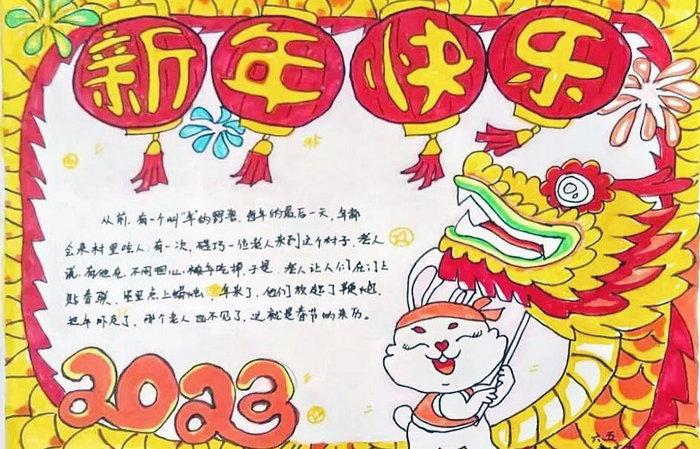 新年快乐
从前,有一个叫"年"的野兽,每年的最后一天,年都
会来村里吃人,有一次,碰巧一位老人来到这个村子,老人
说:有他在,不用担心,被年吃掉,于是,老人让人们在门上
贴春联,屋里点上蜡烛,年来了,他们放起了鞭炮,
把年吓走了,那个老人也不见了,这就是春节的来历。
2023
六五